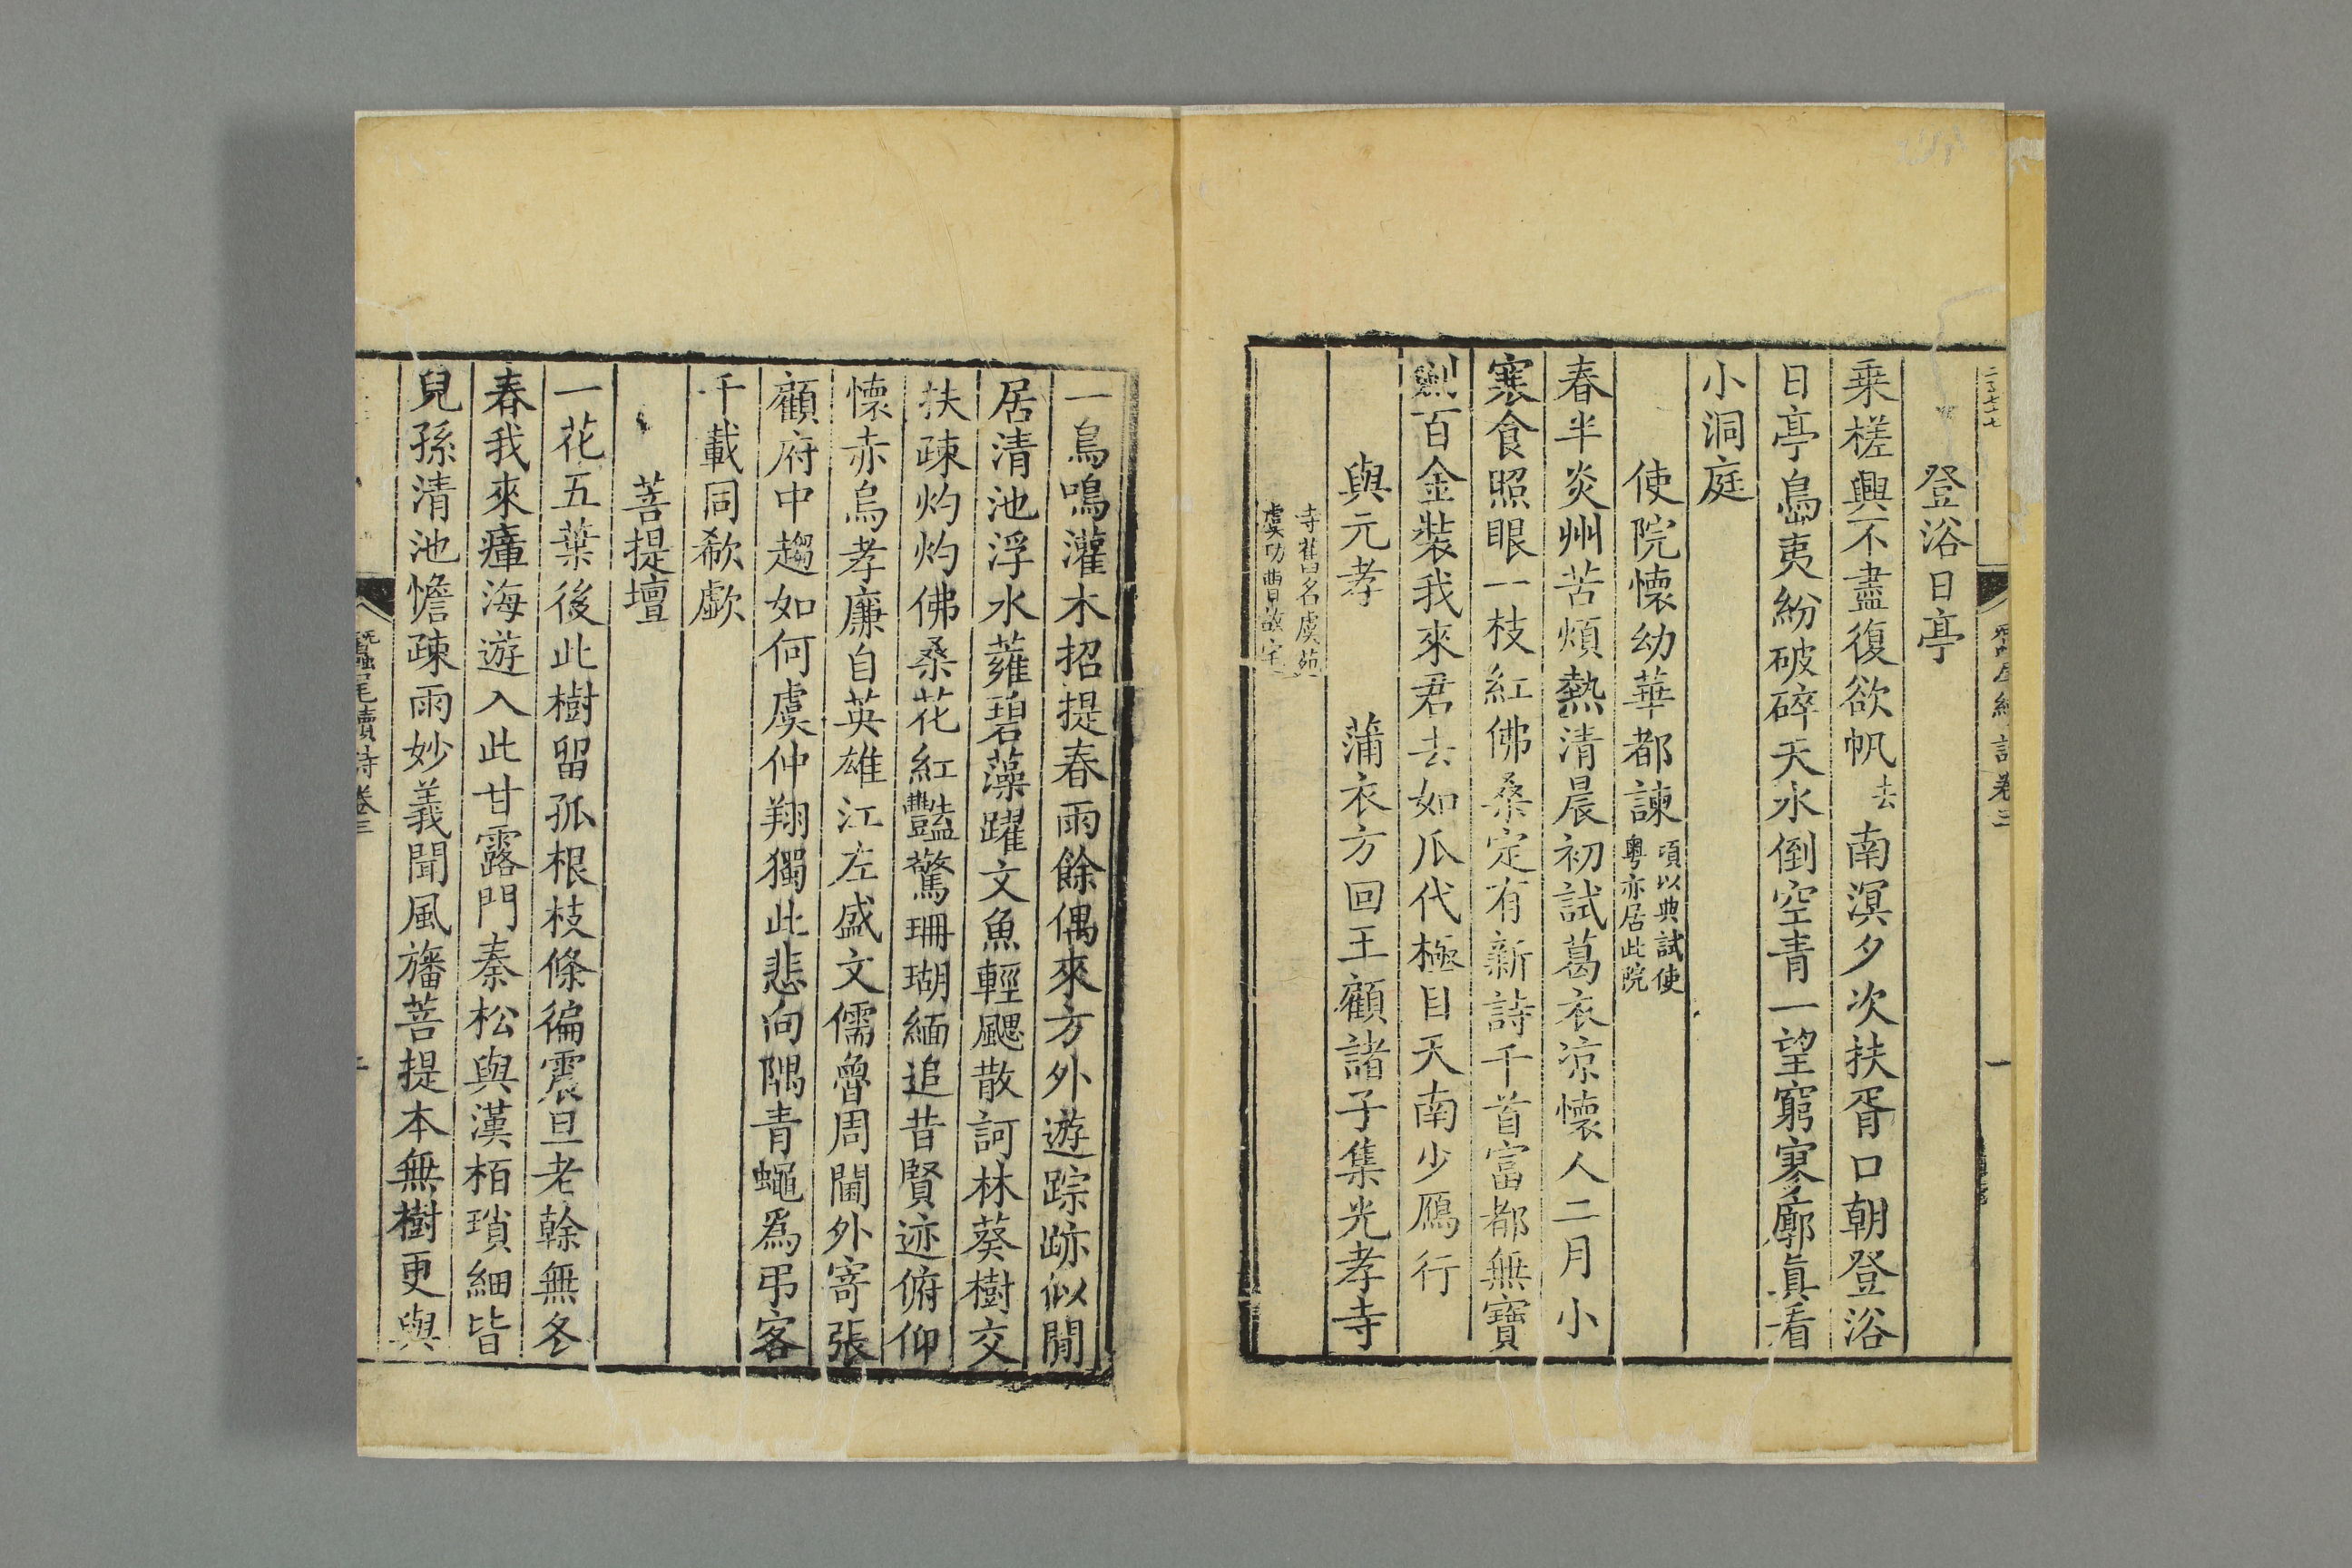 登浴日亭
乗槎興不盡復欲帆去南溟夕次扶胥口朝登浴
日亭島夷紛破碎天水倒空青一望窮寥廓眞看
小洞庭
使院懷幼華都諫頃以典試使粤亦居此院
春半炎州苦煩熱清晨初試葛衣涼懷人二月小
寒食照眼一枝紅佛桑定有新詩千首富都無寶
劍百金裝我來君去如爪代極目天南少鴈行
與元孝 蒲衣方回王顧諸子集光孝寺
寺舊名虞苑虞功曹故宅
卷三
一
一鳥鳴灌木招提春雨餘偶來方外遊踪跡似閒
居清池浮水蕹碧藻躍文魚輕颸散訶林葵樹交
扶疎灼灼佛桑花紅豔驚珊瑚緬追昔賢迹俯仰
懷赤烏孝廉自英雄江左盛文儒魯周閫外寄張
顧府中趨如何虞仲翔獨此悲向隅青蠅爲弔客
千載同欷歔
菩提壇
一花五葉後此樹留孤根枝條徧震旦老榦無冬
春我來瘴海遊入此甘露門秦松與漢栢瑣細皆
兒孫清池憺疎雨妙義聞風旛菩提本無樹更與
蠶尾續詩 卷三